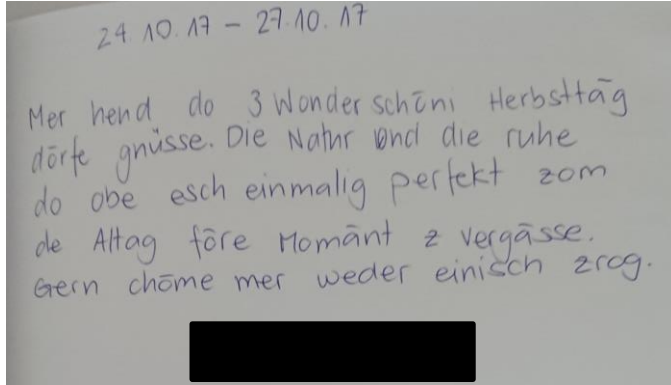 24.10.17 – 27.10.17
Mer hend do 3 Wonderschöni Herbsttäg
dörfe gnüsse. Die Natur ond die ruhe
do obe esch einmalig perfekt zom
de Alltag före Momänt z vergässe.
Gern chöme mer weder einisch zrog.